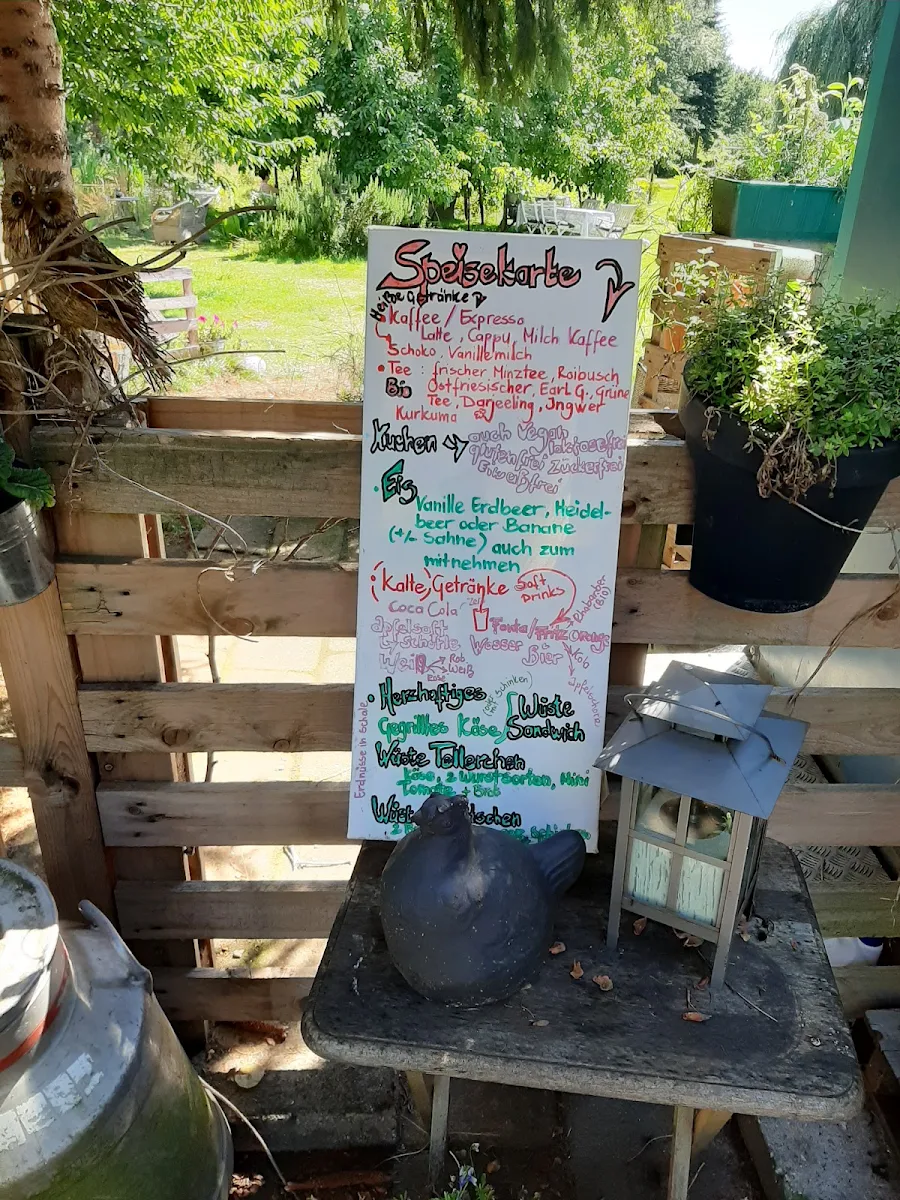 Speisekarte
Heiße Getränke
Kaffee / Expresso
Latte, Cappu, Milch Kaffee
Schoko, Vanillemilch
• Tee : frischer Minztee, Roibusch
Bio Ostfriesischer, Earl G., grüne
Tee, Darjeeling, Ingwer
Kurkuma
Kuchen → auch Vegan laktosefrei
glutenfrei Zuckerfrei
Eiweißfrei
• Eis
Vanille Erdbeer, Heidel-
beer oder Banane
(+/- Sahne) auch zum
mitnehmen
(Kalte) Getränke Soft Drinks
Coca Cola
Apfelsaft Fanta/Fritz Orange
schorle Wasser Bier
Wein Rot Weiß Rosé
Rhabarber (Bio)
Apfelschorle
• Herzhaftes
(oder mit Schinken)
Gegrilltes Käse Wüste Sandwich
Wüste Tellerchen
Käse, 2 Wurstsorten, Mini
Tomate + Brot
Erdnüsse in Schale
Wüst